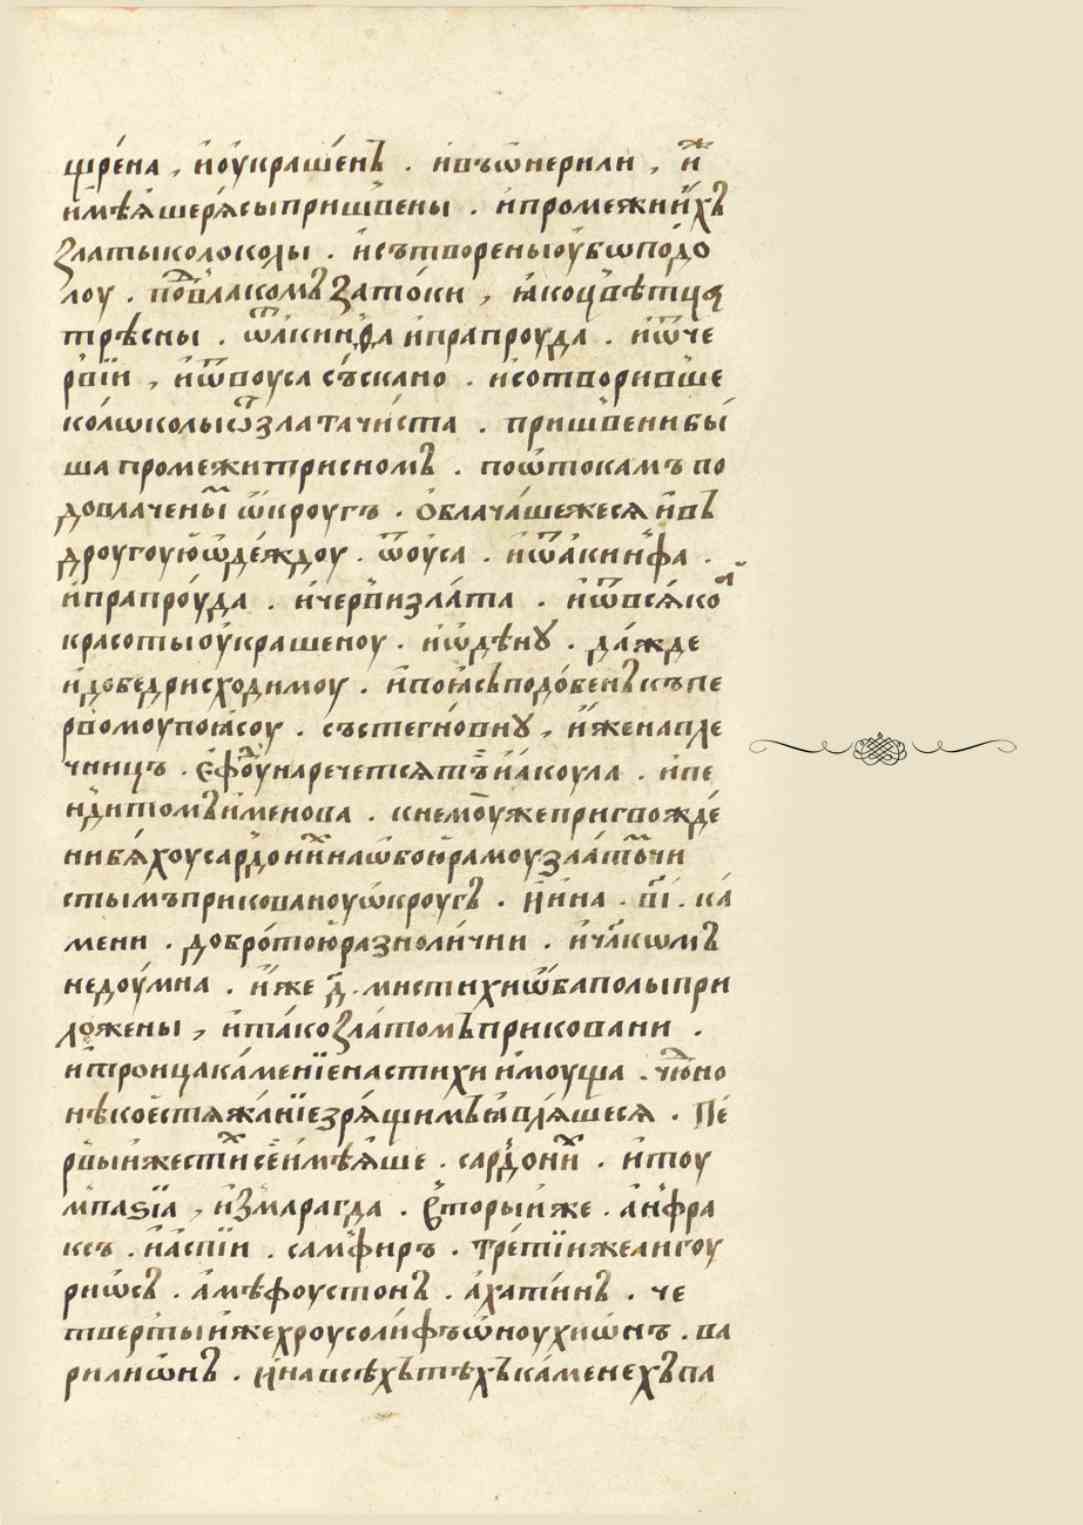 щре́на , и҆ оу҆краше́нъ . и҆ въ ѡ҆нерили , и҆
и҆мѣѧ́ше рѧ́сы пришве́ны . и҆ промежи и҆́хъ
златы колоколы . и҆ сътворены оу҆бѡ по́до
лоу . по́влакомъ зато́ки , ꙗ҆́ко цвѣтцѧ
трѣсны . ѿ акинѳа и҆ прапроуда . и҆ ѿ че
рвїи , и҆ ѿ воуса съ́скано . и҆ сотворивше
ко́лѡколы ѿ злата чи́ста . пришве́ни бы́
ша промежи трисномъ . по ѡ҆́токамъ по
довлачены́ ѡ҆́кроугъ . ѻ҆блача́шежесѧ и҆ въ
дроугоую ѡ҆де́ждоу . ѿ оу҆са . и҆ ѿ а҆кинѳа .
и҆ прапро́уда . и҆ черви зла́та . и҆ ѿ всѧ́ко
красоты оу҆крашеноу . и҆ ѡ҆дѣнꙋ . да́жде
и҆ до бедри сходимоу . и҆ поꙗ́съ подо́бенъ къ пе
рвомоу поꙗ́соу . съ стегно́внꙋ , и҆́же на пле
чницъ . є҆фоу наречетсѧ тъ и҆ а҆коула . и҆ пе
ндитомъ и҆менова . к немоу же пригвожде́
ни бѧ́хоу сардони на ѡ҆бою рамоу зла́томъ чи
стымъ приковано у ѡ҆кроугъ . и҆ на . ві . ка́
мени . добро́тою разноли́чни . и҆ чл҃кѡмъ
недоу́мна . и҆́же д҃ . ми стихи ѡ҆́ба полы при
ложены , и҆ та́ко зла́томъ приковани .
и҆ троица ка́менїе на стихи и҆́моуща . чю́дно
нѣкое стѧжа́нїе зрѧ́щимъ ꙗ҆влѧ́шесѧ . Пе́
рвыи же сти́х сей и҆мѣѧ́ше . сардони́х . и҆ тоу
мпаѕїа , и҆змарагда . вторыи же . а҆нфра
ксъ . и҆а҆́спїи . самфиръ . тре́тїи же лигоу
риѡ́съ . а҆мѣфоустонъ . а҆хати́нъ . че
твертыи же хроусоли́фъ ѡ҆ноухиѡ́нъ . ва
рилиѡ́нъ . и҆ на всѣхъ тѣхъ ка́менехъ па